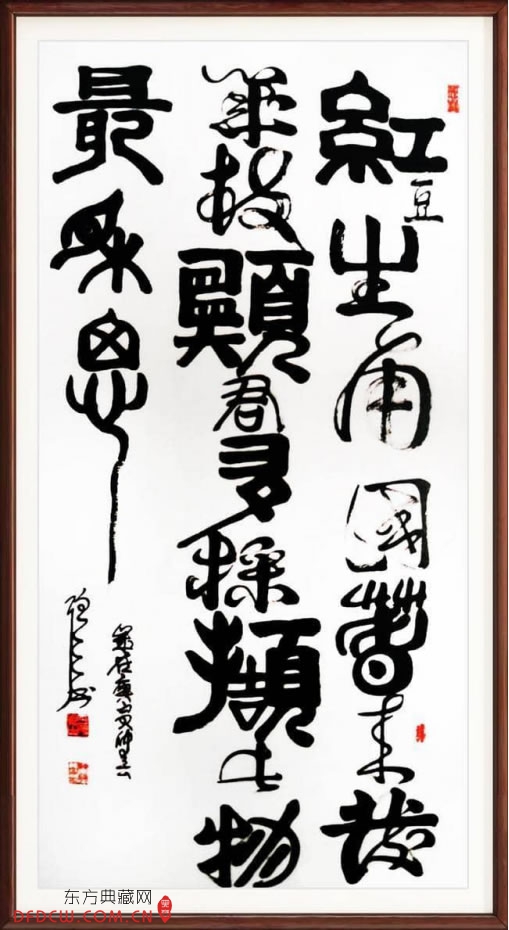 紅豆生南國春来發
幾枝願君多採擷此物
最相思
歲在庚寅
东方典藏网
DFDCW.COM.CN